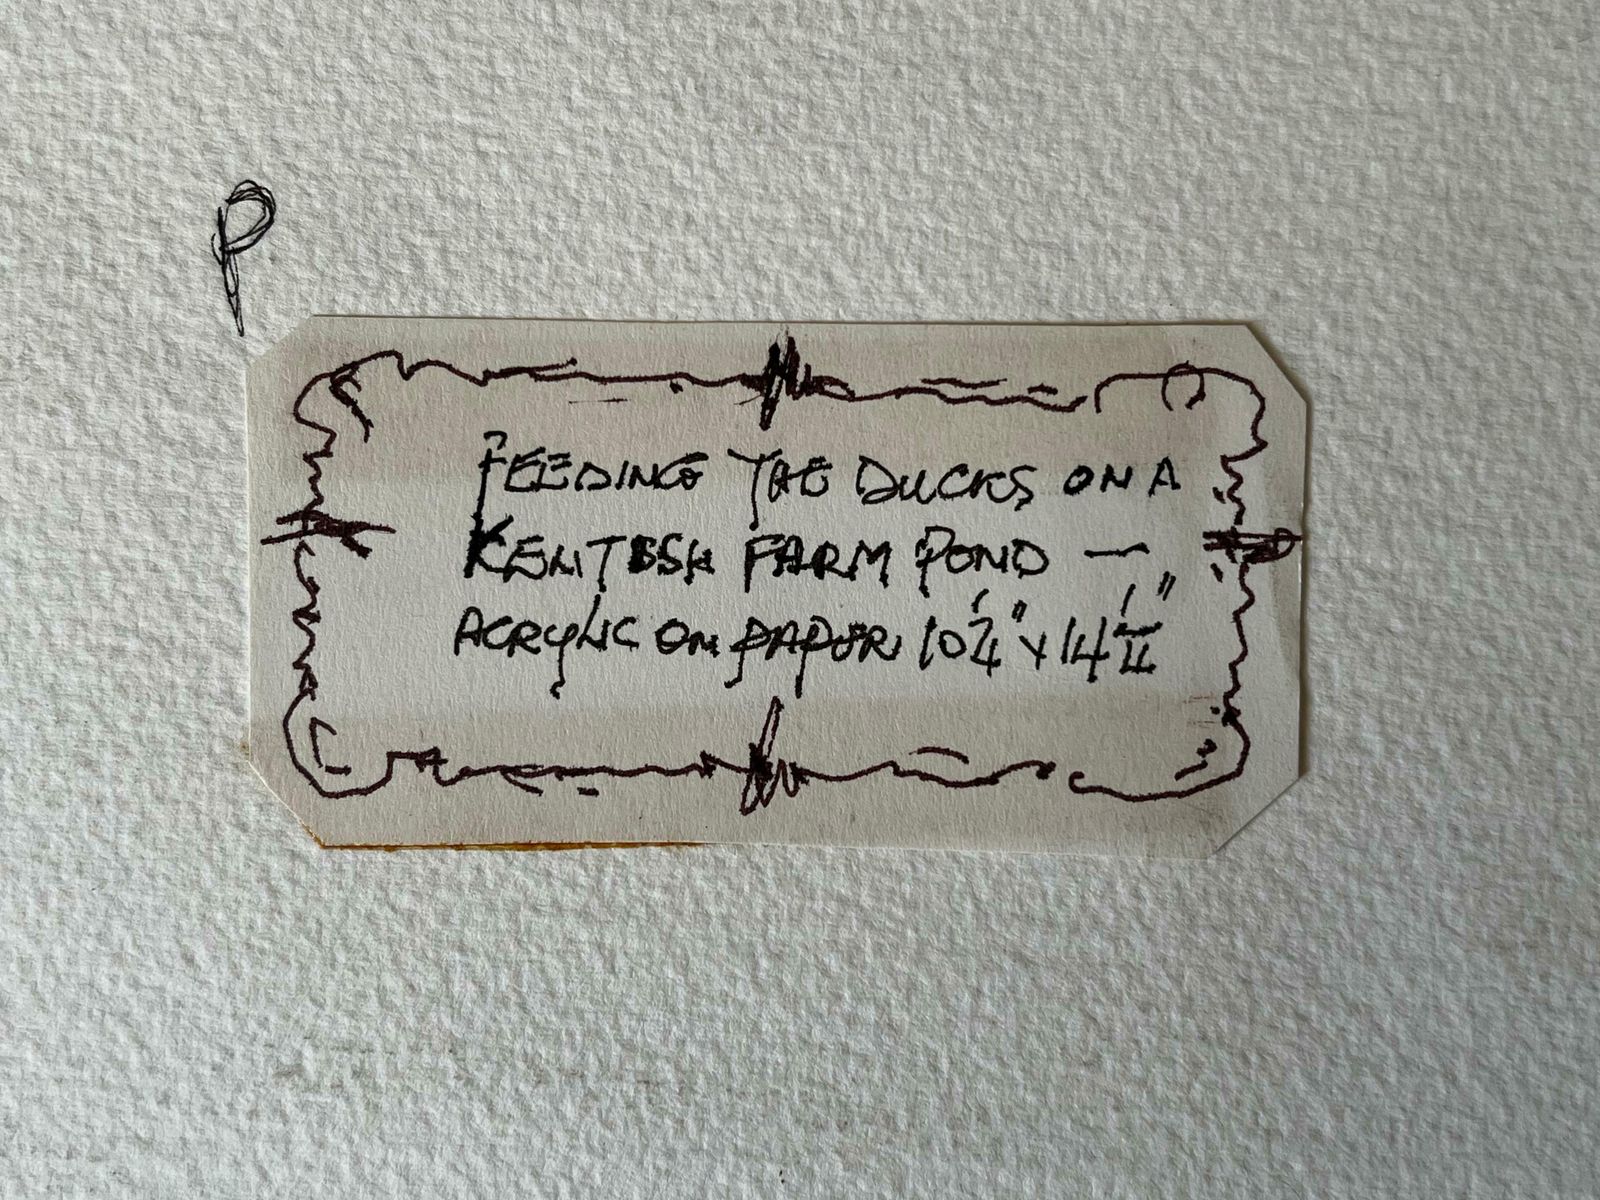 P
FEEDING THE DUCKS ON A
KENTISH FARM POND —
ACRYLIC ON PAPER 10 1/4" x 14 1/4"